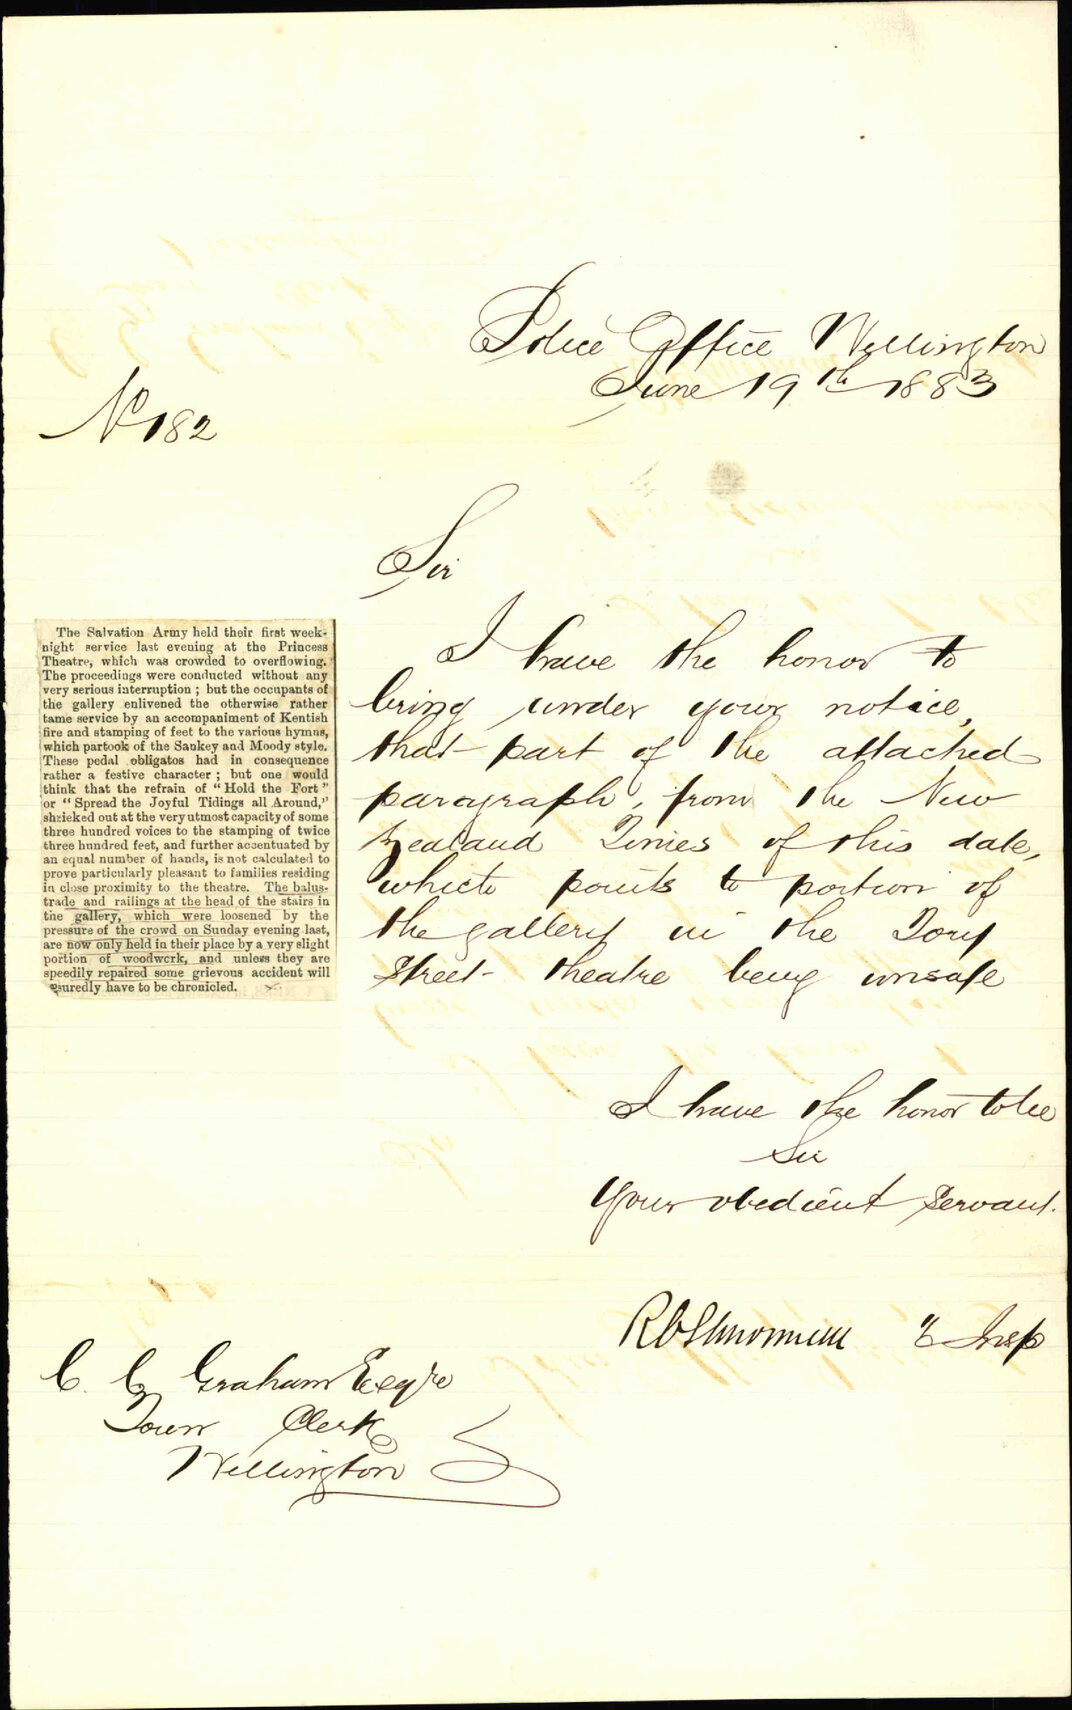 Police Office Wellington
June 19th 1883
No 182
Sir
I have the honor to
bring under your notice,
that part of the attached
paragraph, from the New
Zealand Times of this date,
which points to portion of
the gallery in the Tory
Street theatre being unsafe
I have the honor to be
Sir
Your obedient Servant.
Insp
C. C. Graham Esqre
Town Clerk
Wellington
The Salvation Army held their first week-
night service last evening at the Princess
Theatre, which was crowded to overflowing.
The proceedings were conducted without any
very serious interruption; but the occupants of
the gallery enlivened the otherwise rather
tame service by an accompaniment of Kentish
fire and stamping of feet to the various hymns,
which partook of the Sankey and Moody style.
These pedal obligatos had in consequence
rather a festive character; but one would
think that the refrain of "Hold the Fort"
or "Spread the Joyful Tidings all Around,"
shrieked out at the very utmost capacity of some
three hundred voices to the stamping of twice
three hundred feet, and further accentuated by
an equal number of hands, is not calculated to
prove particularly pleasant to families residing
in close proximity to the theatre. The balus-
trade and railings at the head of the stairs in
the gallery, which were loosened by the
pressure of the crowd on Sunday evening last,
are now only held in their place by a very slight
portion of woodwork, and unless they are
speedily repaired some grievous accident will
suredly have to be chronicled.